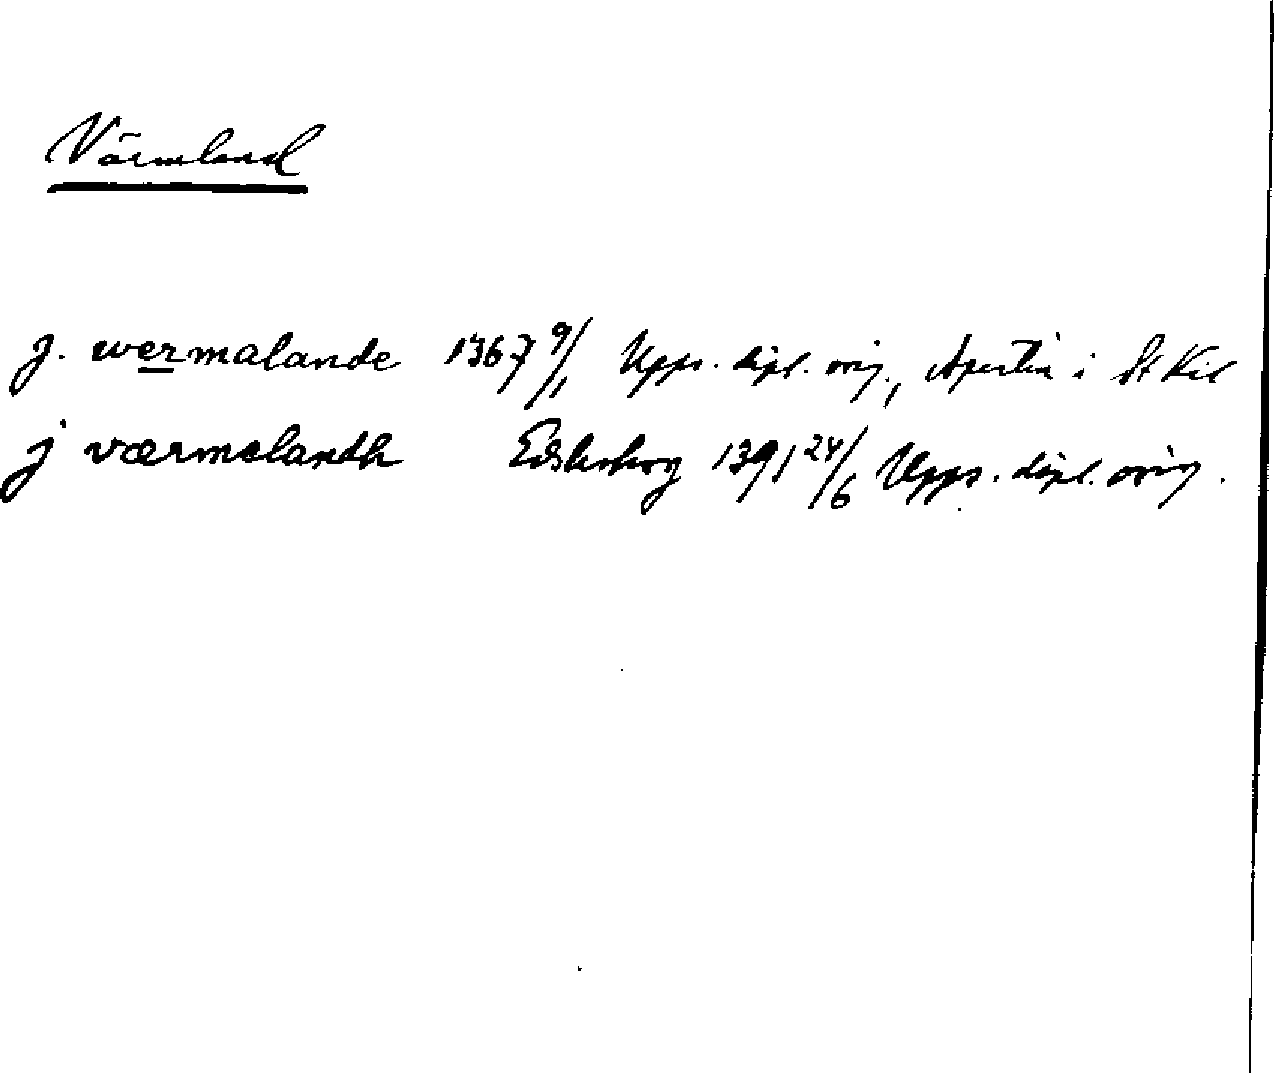 Värmland
j. wermalande 1367 9/1 Upps. dipl. orig., Apertin i St Kil
j værmelandh Edsberg 1391 24/6 Upps. dipl. orig.